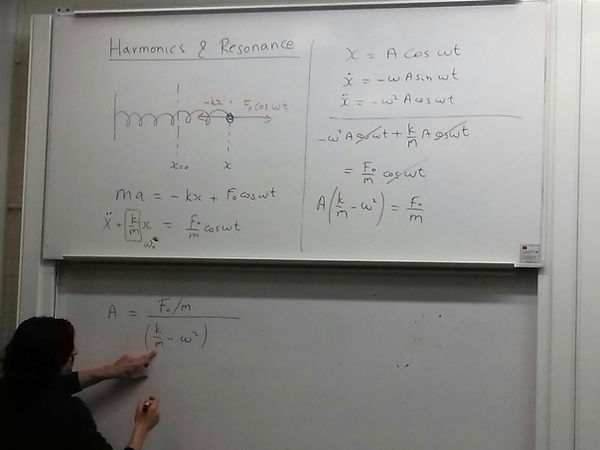 Harmonics & Resonance
-kx
F₀ cos ωt
x=0
x
ma = -kx + F₀ cos ωt
ẍ + k/m x = F₀/m cos ωt
ω₀²
x = A cos ωt
ẋ = -ωA sin ωt
ẍ = -ω² A cos ωt
-ω² A cos ωt + k/m A cos ωt
= F₀/m cos ωt
A(k/m - ω²) = F₀/m
A = F₀/m / (k/m - ω²)